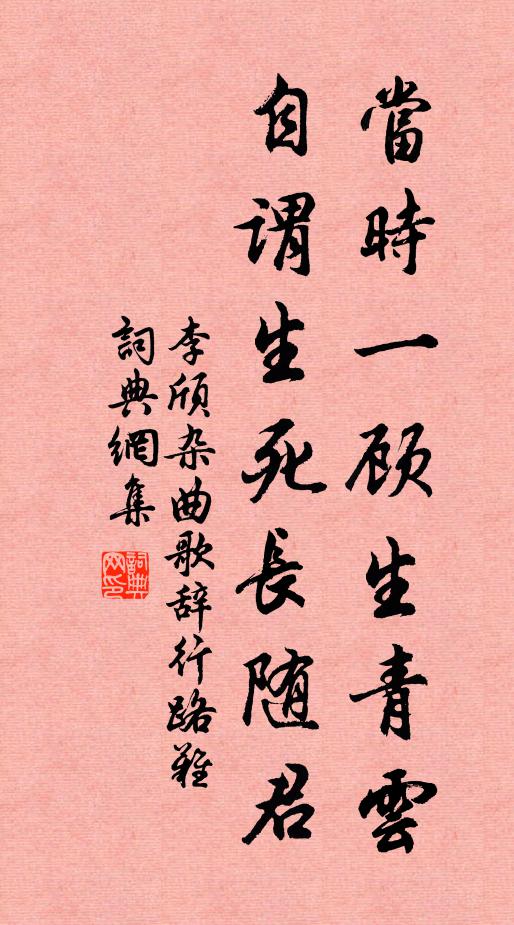 當時一顾生青雲
自謂生死長随君
李颀杂曲歌辞行路難
詞典網集
詞典網印